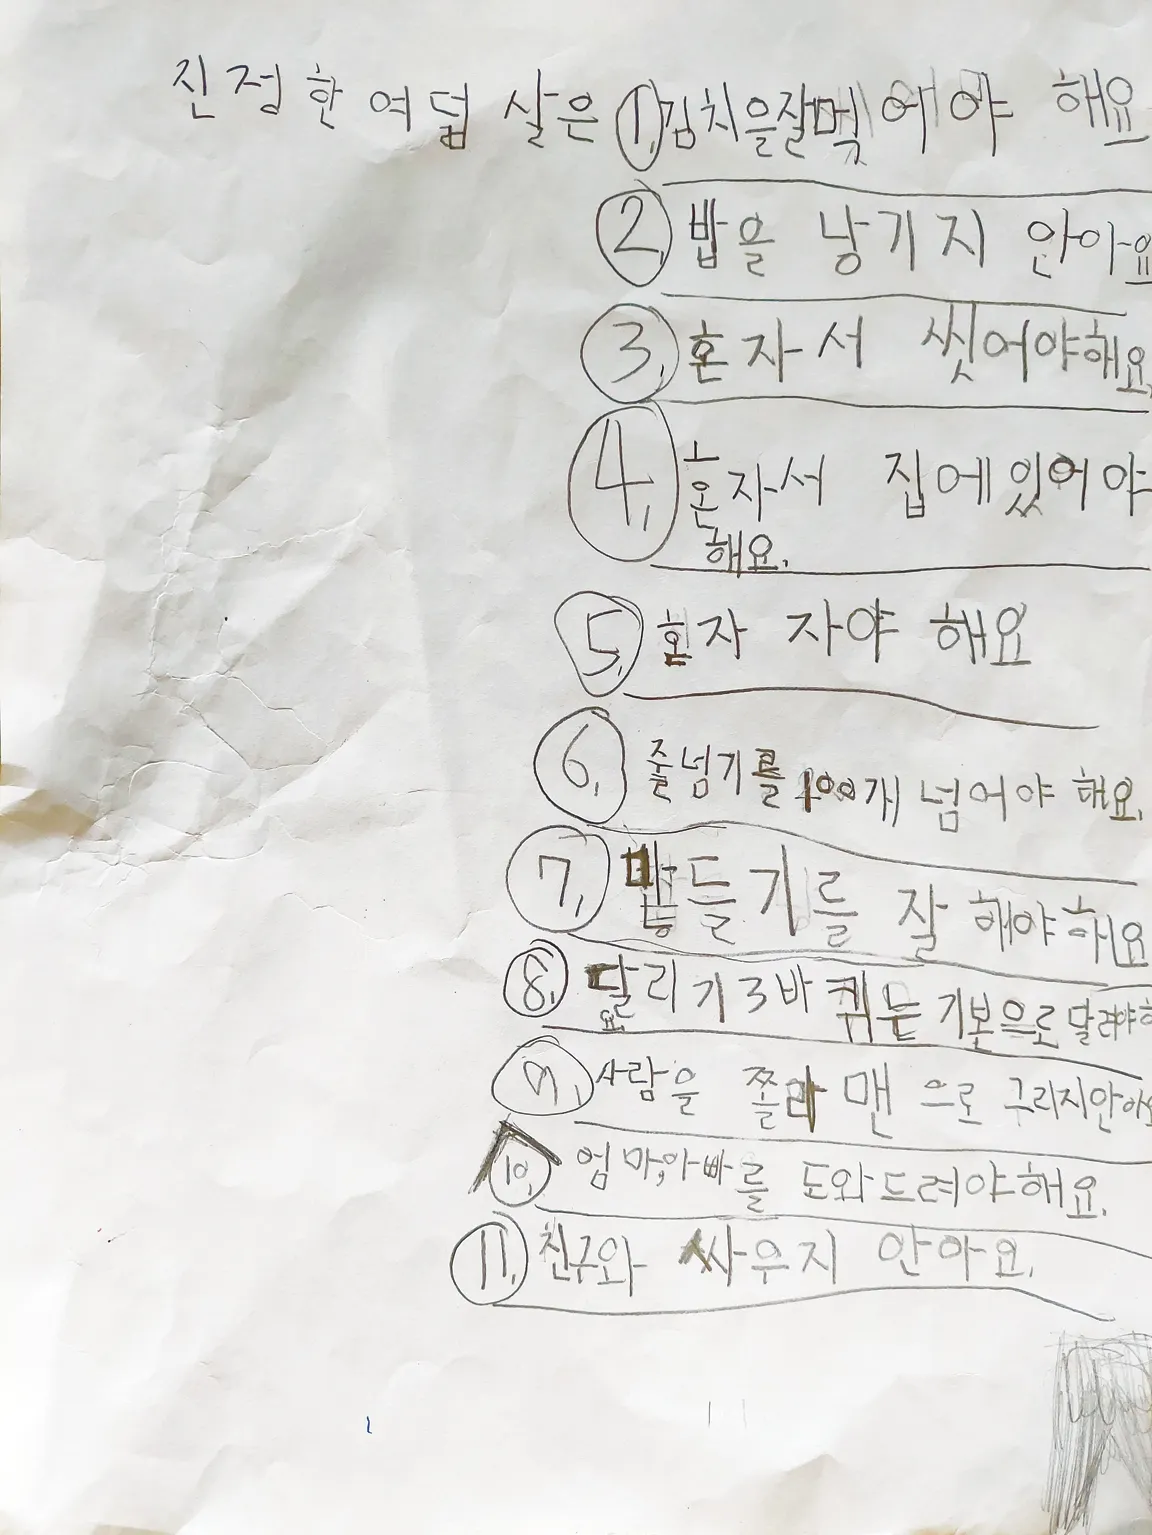 진정한 여덟 살은 1. 김치을잘먹어야 해요
2. 밥을 낭기지 안아요
3. 혼자서 씻어야해요.
4. 혼자서 집에있어야
해요.
5. 혼자 자야 해요
6. 줄넘기를 100개 넘어야 해요.
7. 만들기를 잘 해야해요
8. 달리기 3바퀴는 기본으로 달려야해
요.
9. 사람을 쫄라맨 으로 구리지안아요
10. 엄마,아빠를 도와드려야해요.
11. 친구와 싸우지 안아요.